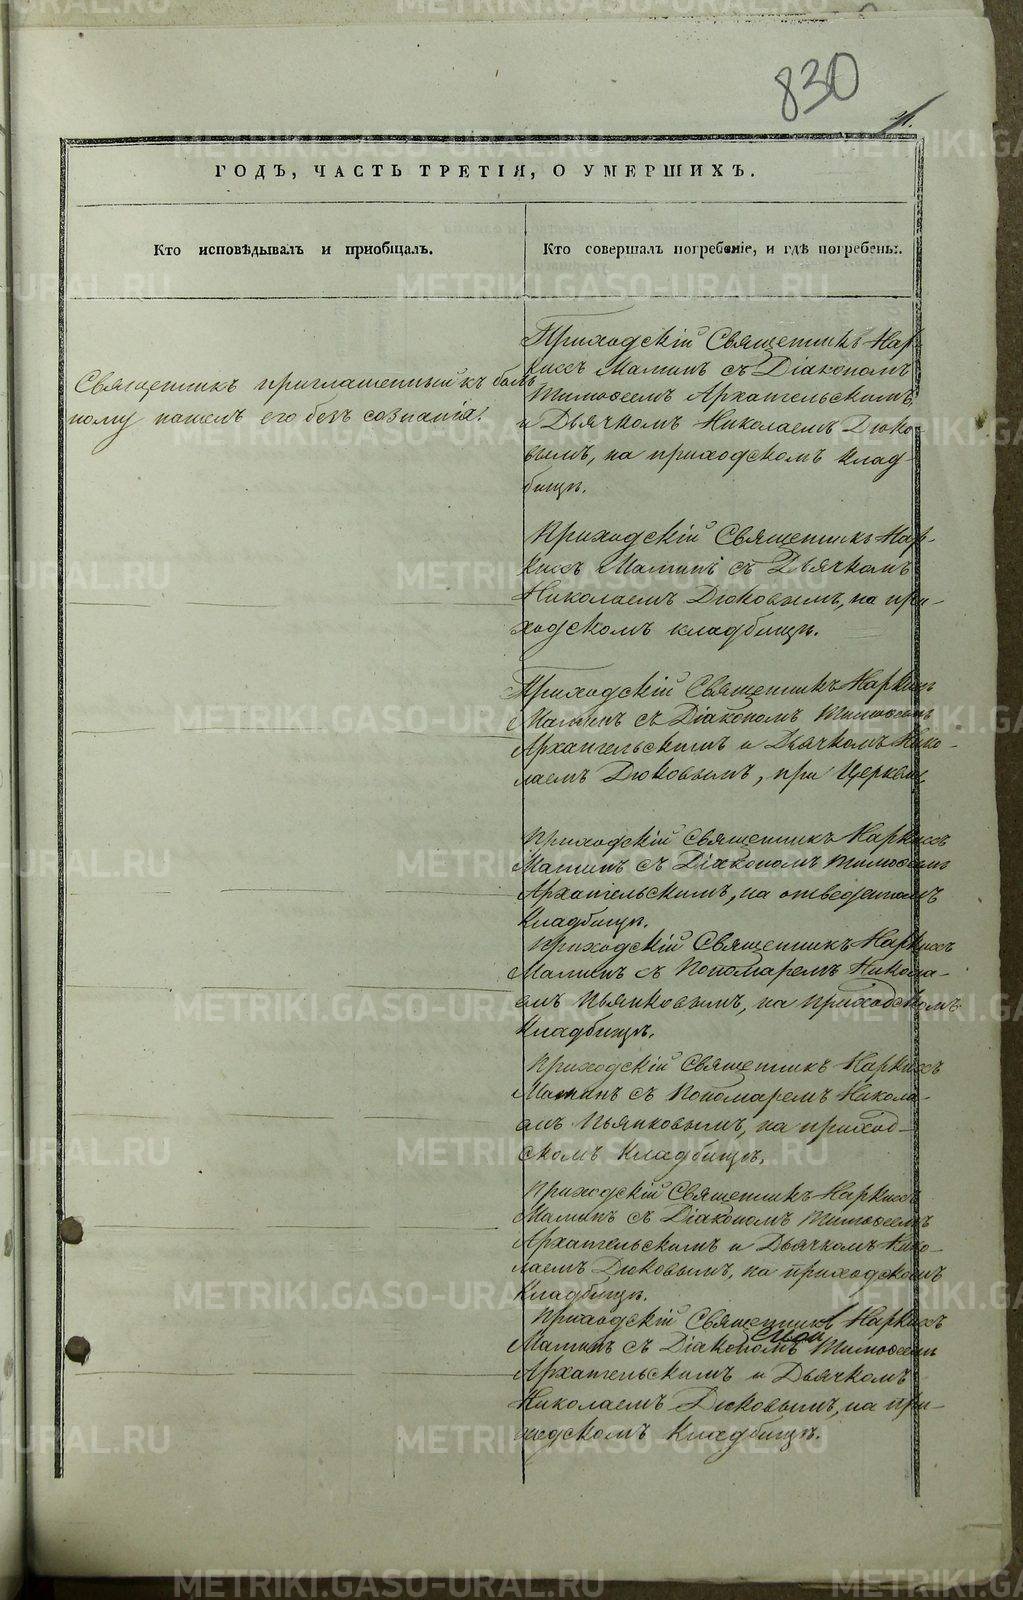 830
ГОДЪ, ЧАСТЬ ТРЕТІЯ, О УМЕРШИХЪ.
Кто исповѣдывалъ и приобщалъ.
Кто совершалъ погребеніе, и гдѣ погребены.
Священникъ приглашенный къ боль
ному нашелъ его безъ сознанія.
Приходскій Священникъ Нар-
киссъ Маминъ съ Діакономъ
Тимоѳеемъ Архангельскимъ
и Дьячкомъ Николаемъ Дюко-
вымъ, на приходскомъ клад-
бищѣ.
Приходскій Священникъ Нар-
киссъ Маминъ съ Дьячкомъ
Николаемъ Дюковымъ, на при-
ходскомъ кладбищѣ.
Приходскій Священникъ Наркиссъ
Маминъ съ Діакономъ Тимоѳеемъ
Архангельскимъ и Дьячкомъ Нико-
лаемъ Дюковымъ, при Церкви.
Приходскій Священникъ Наркиссъ
Маминъ съ Діакономъ Тимоѳеемъ
Архангельскимъ, на отведенномъ
кладбищѣ.
Приходскій Священникъ Наркиссъ
Маминъ съ Пономаремъ Никола-
емъ Пьянковымъ, на приходскомъ
кладбищѣ.
Приходскій Священникъ Наркиссъ
Маминъ съ Пономаремъ Никола-
емъ Пьянковымъ, на приход-
скомъ кладбищѣ.
Приходскій Священникъ Наркиссъ
Маминъ съ Діакономъ Тимоѳеемъ
Архангельскимъ и Дьячкомъ Нико-
лаемъ Дюковымъ, на приходскомъ
кладбищѣ.
Приходскій Священникъ Наркиссъ
Маминъ съ Діакономъ Тимоѳеемъ
Архангельскимъ и Дьячкомъ
Николаемъ Дюковымъ, на при-
ходскомъ кладбищѣ.
METRIKI.GASO-URAL.RU